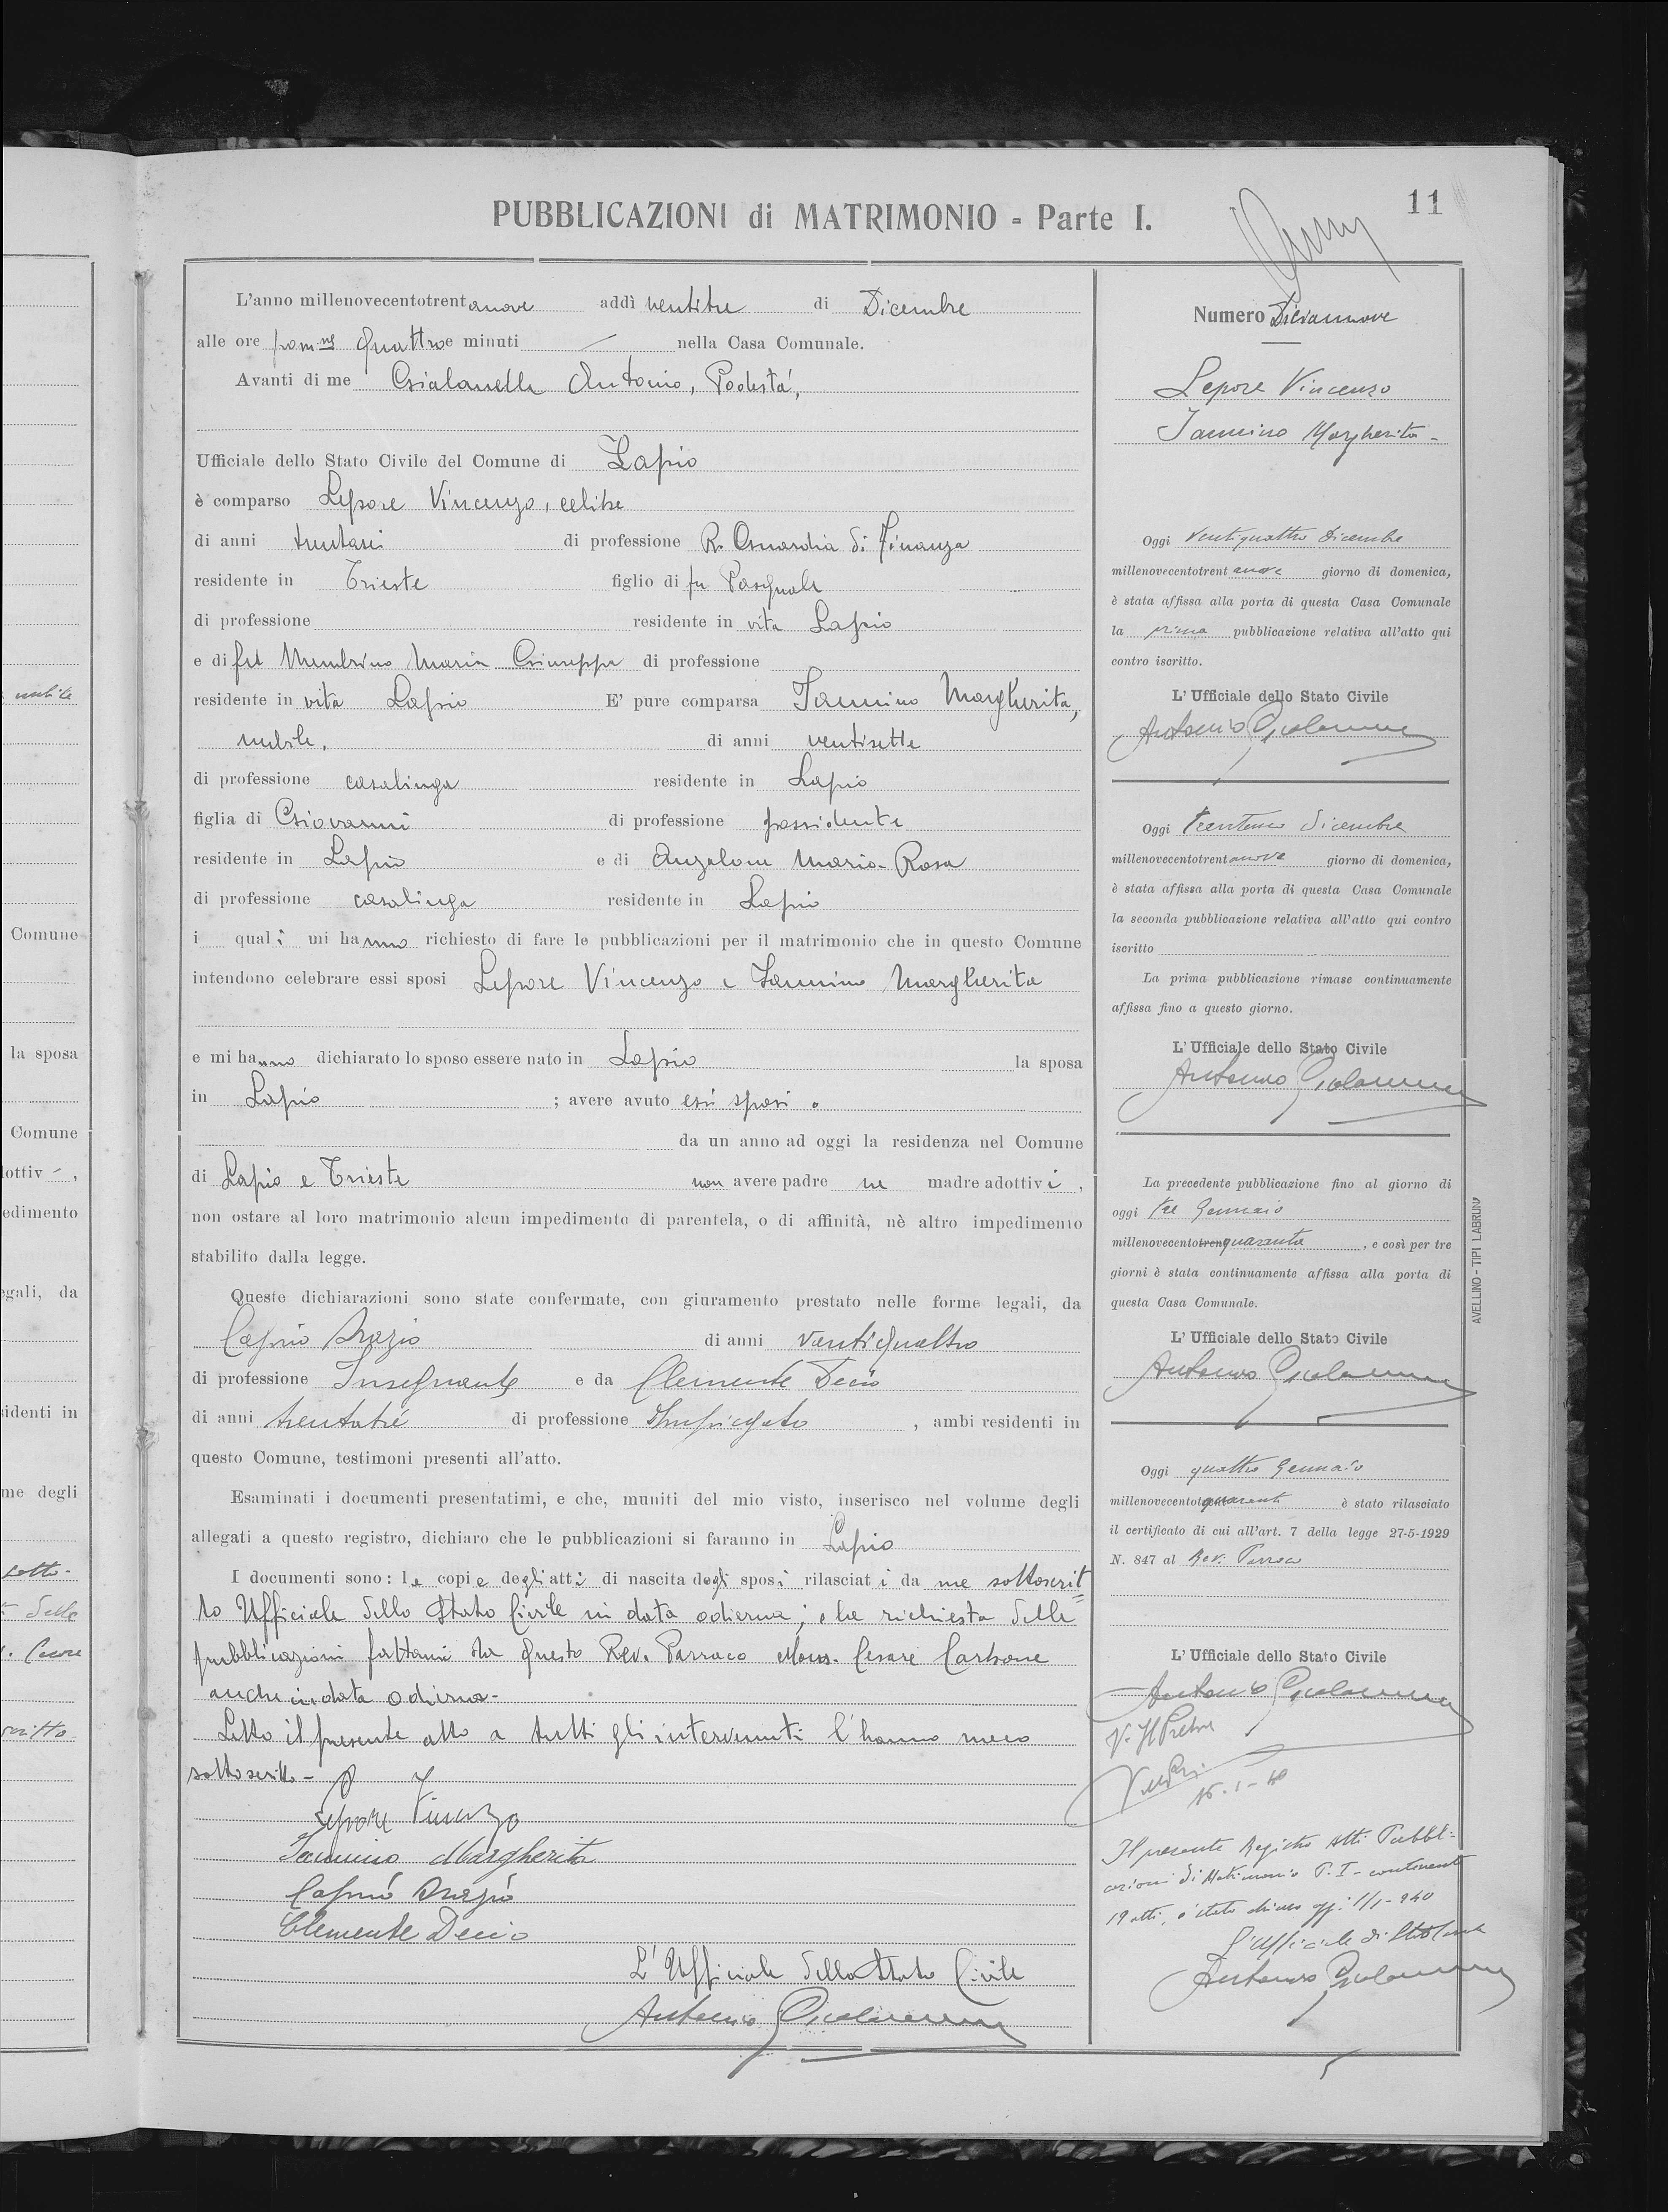 PUBBLICAZIONI di MATRIMONIO - Parte I.
11
L'anno millenovecentotrentanove addì ventitre di Dicembre
alle ore pom.ne quattro e minuti — nella Casa Comunale.
Avanti di me Gialanella Antonio, Podestà,
Ufficiale dello Stato Civile del Comune di Lapio
è comparso Lepore Vincenzo, celibe
di anni trentasei di professione R. Guardia di Finanza
residente in Trieste figlio di fu Pasquale
di professione residente in vita Lapio
e di fu Membrino Maria Giuseppa di professione
residente in vita Lapio E' pure comparsa Iannino Margherita,
nubile, di anni ventisette
di professione casalinga residente in Lapio
figlia di Giovanni di professione possidente
residente in Lapio e di Anzalone Maria-Rosa
di professione casalinga residente in Lapio
i quali mi hanno richiesto di fare le pubblicazioni per il matrimonio che in questo Comune
intendono celebrare essi sposi Lepore Vincenzo e Iannino Margherita
e mi hanno dichiarato lo sposo essere nato in Lapio la sposa
in Lapio ; avere avuto essi sposi
da un anno ad oggi la residenza nel Comune
di Lapio e Trieste non avere padre ne madre adottivi,
non ostare al loro matrimonio alcun impedimento di parentela, o di affinità, nè altro impedimento
stabilito dalla legge.
Queste dichiarazioni sono state confermate, con giuramento prestato nelle forme legali, da
Caprio Orazio di anni ventiquattro
di professione Insegnante e da Clemente Decio
di anni trentatré di professione Impiegato , ambi residenti in
questo Comune, testimoni presenti all'atto.
Esaminati i documenti presentatimi, e che, muniti del mio visto, inserisco nel volume degli
allegati a questo registro, dichiaro che le pubblicazioni si faranno in Lapio
I documenti sono: le copie degli atti di nascita degli sposi rilasciati da me sottoscrit=
to Ufficiale dello Stato Civile in data odierna; e la richiesta delle
pubblicazioni fattami da questo Rev. Parroco Mons. Cesare Carbone
anche in data odierna-
Letto il presente atto a tutti gli intervenuti l'hanno meco
sottoscritto-
Lepore Vincenzo
Iannino Margherita
Caprio Orazio
Clemente Decio
L'Ufficiale dello Stato Civile
Antonio Gialanella
Numero Diciannove
Lepore Vincenzo
Iannino Margherita-
Oggi ventiquattro Dicembre
millenovecentotrentanove giorno di domenica,
è stata affissa alla porta di questa Casa Comunale
la prima pubblicazione relativa all'atto qui
contro iscritto.
L'Ufficiale dello Stato Civile
Antonio Gialanella
Oggi trentuno Dicembre
millenovecentotrentanove giorno di domenica,
è stata affissa alla porta di questa Casa Comunale
la seconda pubblicazione relativa all'atto qui contro
iscritto
La prima pubblicazione rimase continuamente
affissa fino a questo giorno.
L'Ufficiale dello Stato Civile
Antonio Gialanella
La precedente pubblicazione fino al giorno di
oggi tre Gennaio
millenovecentotrenquaranta , e così per tre
giorni è stata continuamente affissa alla porta di
questa Casa Comunale.
L'Ufficiale dello Stato Civile
Antonio Gialanella
Oggi quattro Gennaio
millenovecentoquaranta è stato rilasciato
il certificato di cui all'art. 7 della legge 27-5-1929
N. 847 al Rev. Parroco
L'Ufficiale dello Stato Civile
Antonio Gialanella
V. Il Pretore
16-1-40
Il presente Registro Atti Pubbli-
cazioni di Matrimonio P. I - contenente
19 atti, è stato chiuso oggi 1/1-940
L'Ufficiale di Stato Civile
Antonio Gialanella
AVELLINO - TIPI LABRUNA
nubile
Comune
la sposa
Comune
lottiv - ,
edimento
egali, da
sidenti in
me degli
delle
Cuore